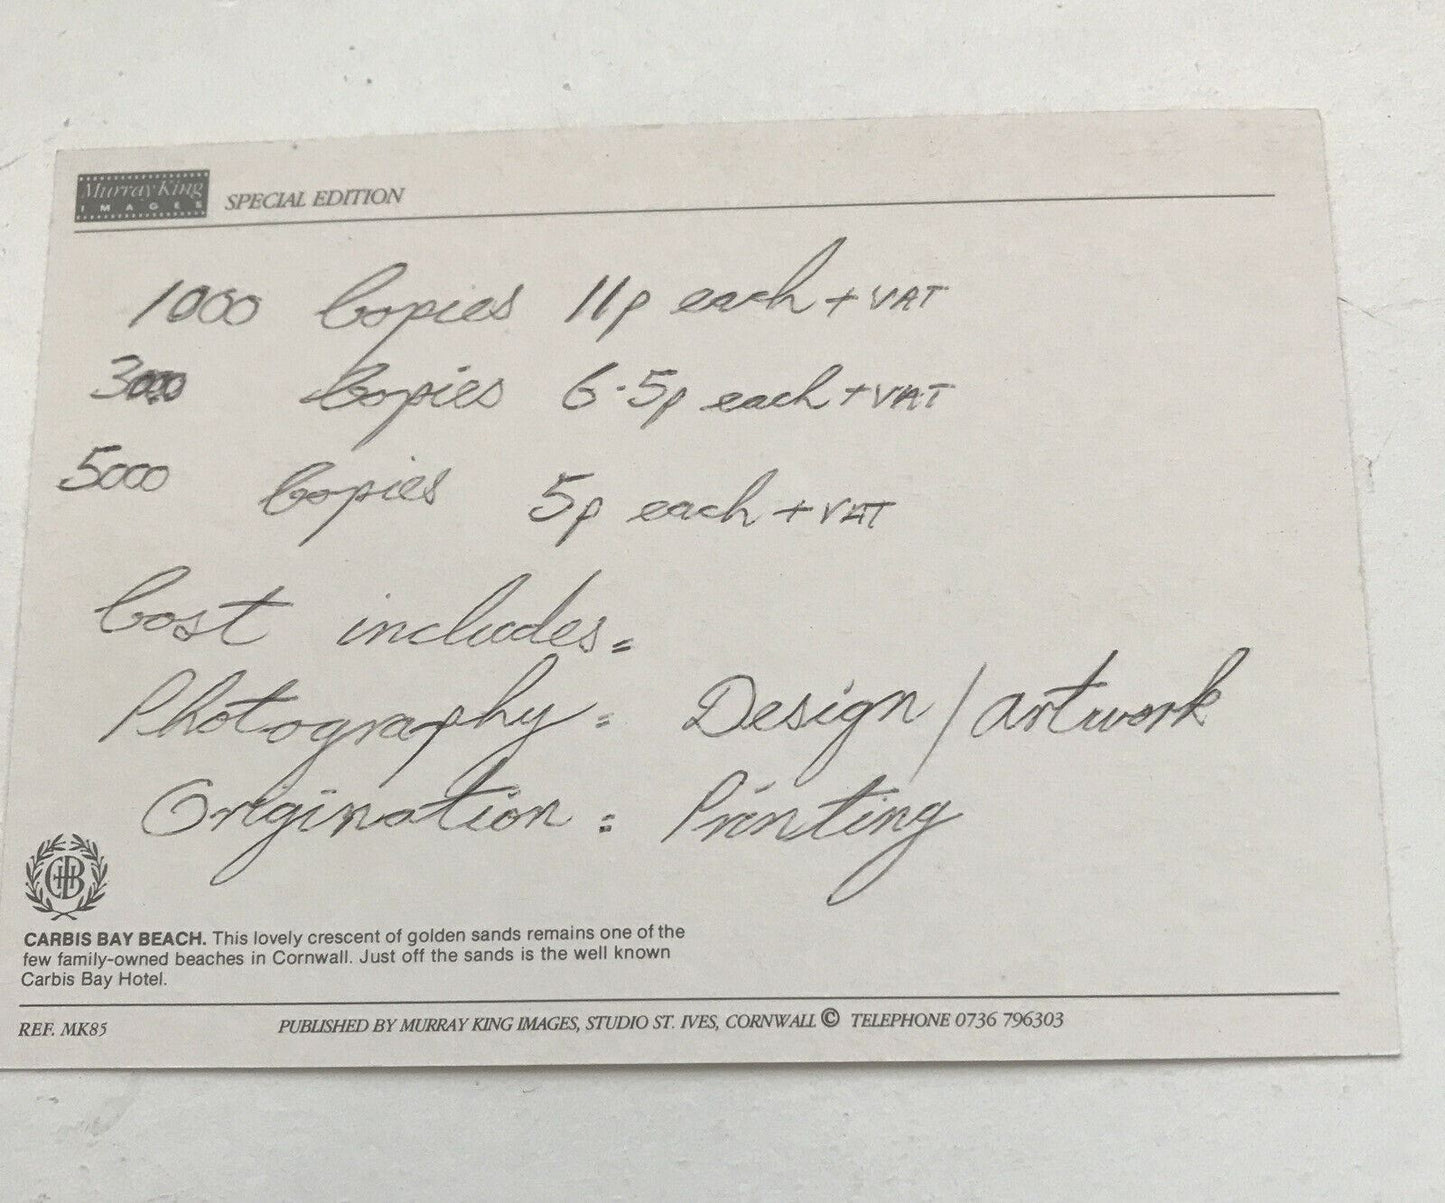 Murray King
IMAGES
SPECIAL EDITION
1000 Copies 11p each + VAT
3000 Copies 6.5p each + VAT
5000 Copies 5p each + VAT
Cost includes =
Photography = Design / artwork
Origination = Printing
CHB
CARBIS BAY BEACH. This lovely crescent of golden sands remains one of the
few family-owned beaches in Cornwall. Just off the sands is the well known
Carbis Bay Hotel.
REF. MK85 PUBLISHED BY MURRAY KING IMAGES, STUDIO ST. IVES, CORNWALL © TELEPHONE 0736 796303